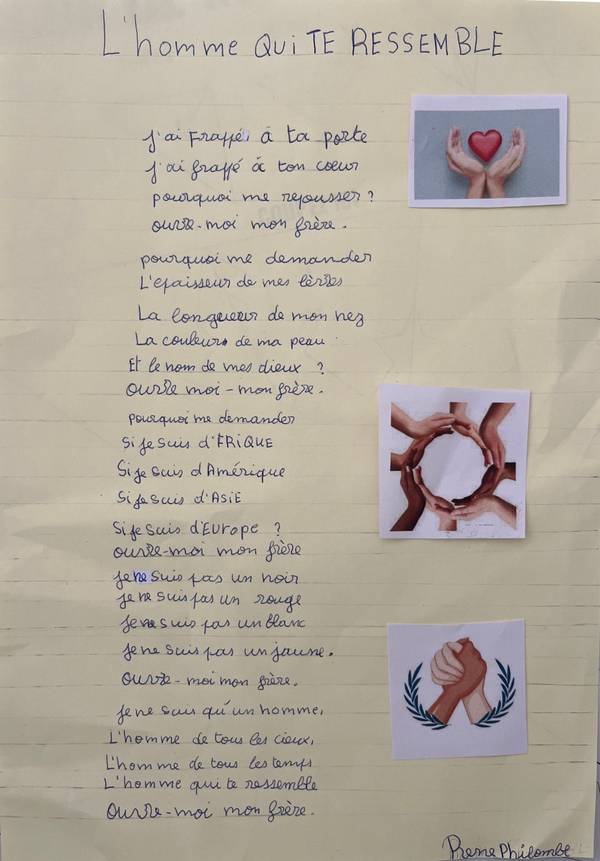 L'homme QUi TE RESSEMBLE
J'ai Frappé à ta porte
J'ai frappé à ton coeur
pourquoi me repousser ?
ouvre-moi mon frère.
pourquoi me demander
L'epaisseur de mes lèvres
La longueur de mon nez
La couleur de ma peau
Et le nom de mes dieux ?
Ouvre moi - mon frère.
pourquoi me demander
Si je suis d'FRiQUE
Si je suis d'Amérique
Si je suis d'ASiE
Si je suis d'Europe ?
ouvre-moi mon frère
Je ne suis pas un noir
Je ne suis pas un rouge
Je ne suis pas un blanc
Je ne suis pas un jaune.
Ouvre-moi mon frère.
Je ne suis qu'un homme,
L'homme de tous les cieux,
L'homme de tous les temps
L'homme qui te ressemble
Ouvre-moi mon frère.
Rene Philombe